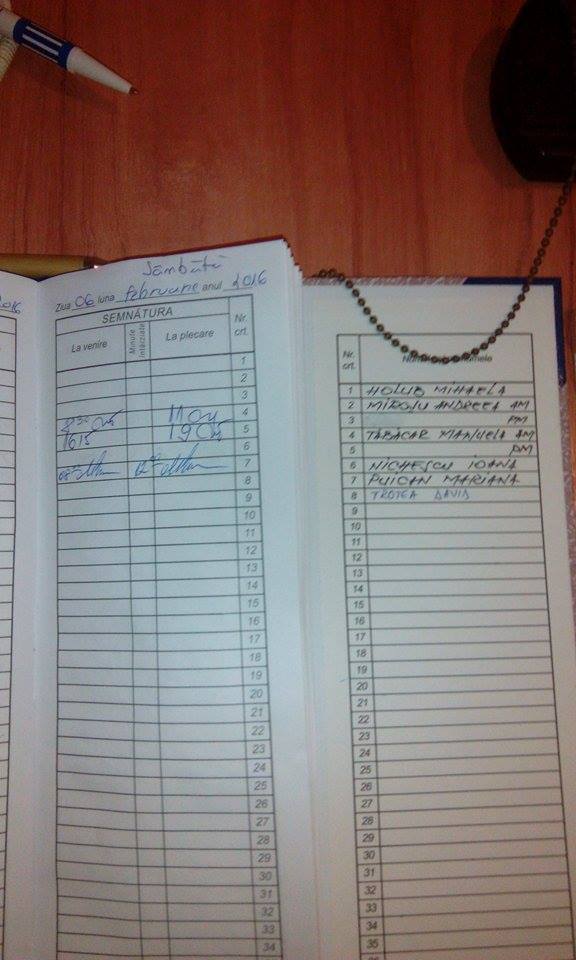 2016
Sâmbătă
Ziua 06 luna februarie anul 2016
SEMNĂTURA
La venire
Minute întârziate
La plecare
Nr. crt.
1
2
3
4
5
16 15 19 05
6
7
8
9
10
11
12
13
14
15
16
17
18
19
20
21
22
23
24
25
26
27
28
29
30
31
32
33
34
Nr. crt.
1 HOLUB MIHAELA
2 MIROIU ANDREEA AM
3 PM
4 TABACAR MANUELA AM
5 PM
6 NICHESCU IOANA
7 PUICAN MARIANA
8 TROTEA DAVID
9
10
11
12
13
14
15
16
17
18
19
20
21
22
23
24
25
26
27
28
29
30
31
32
33
34
35